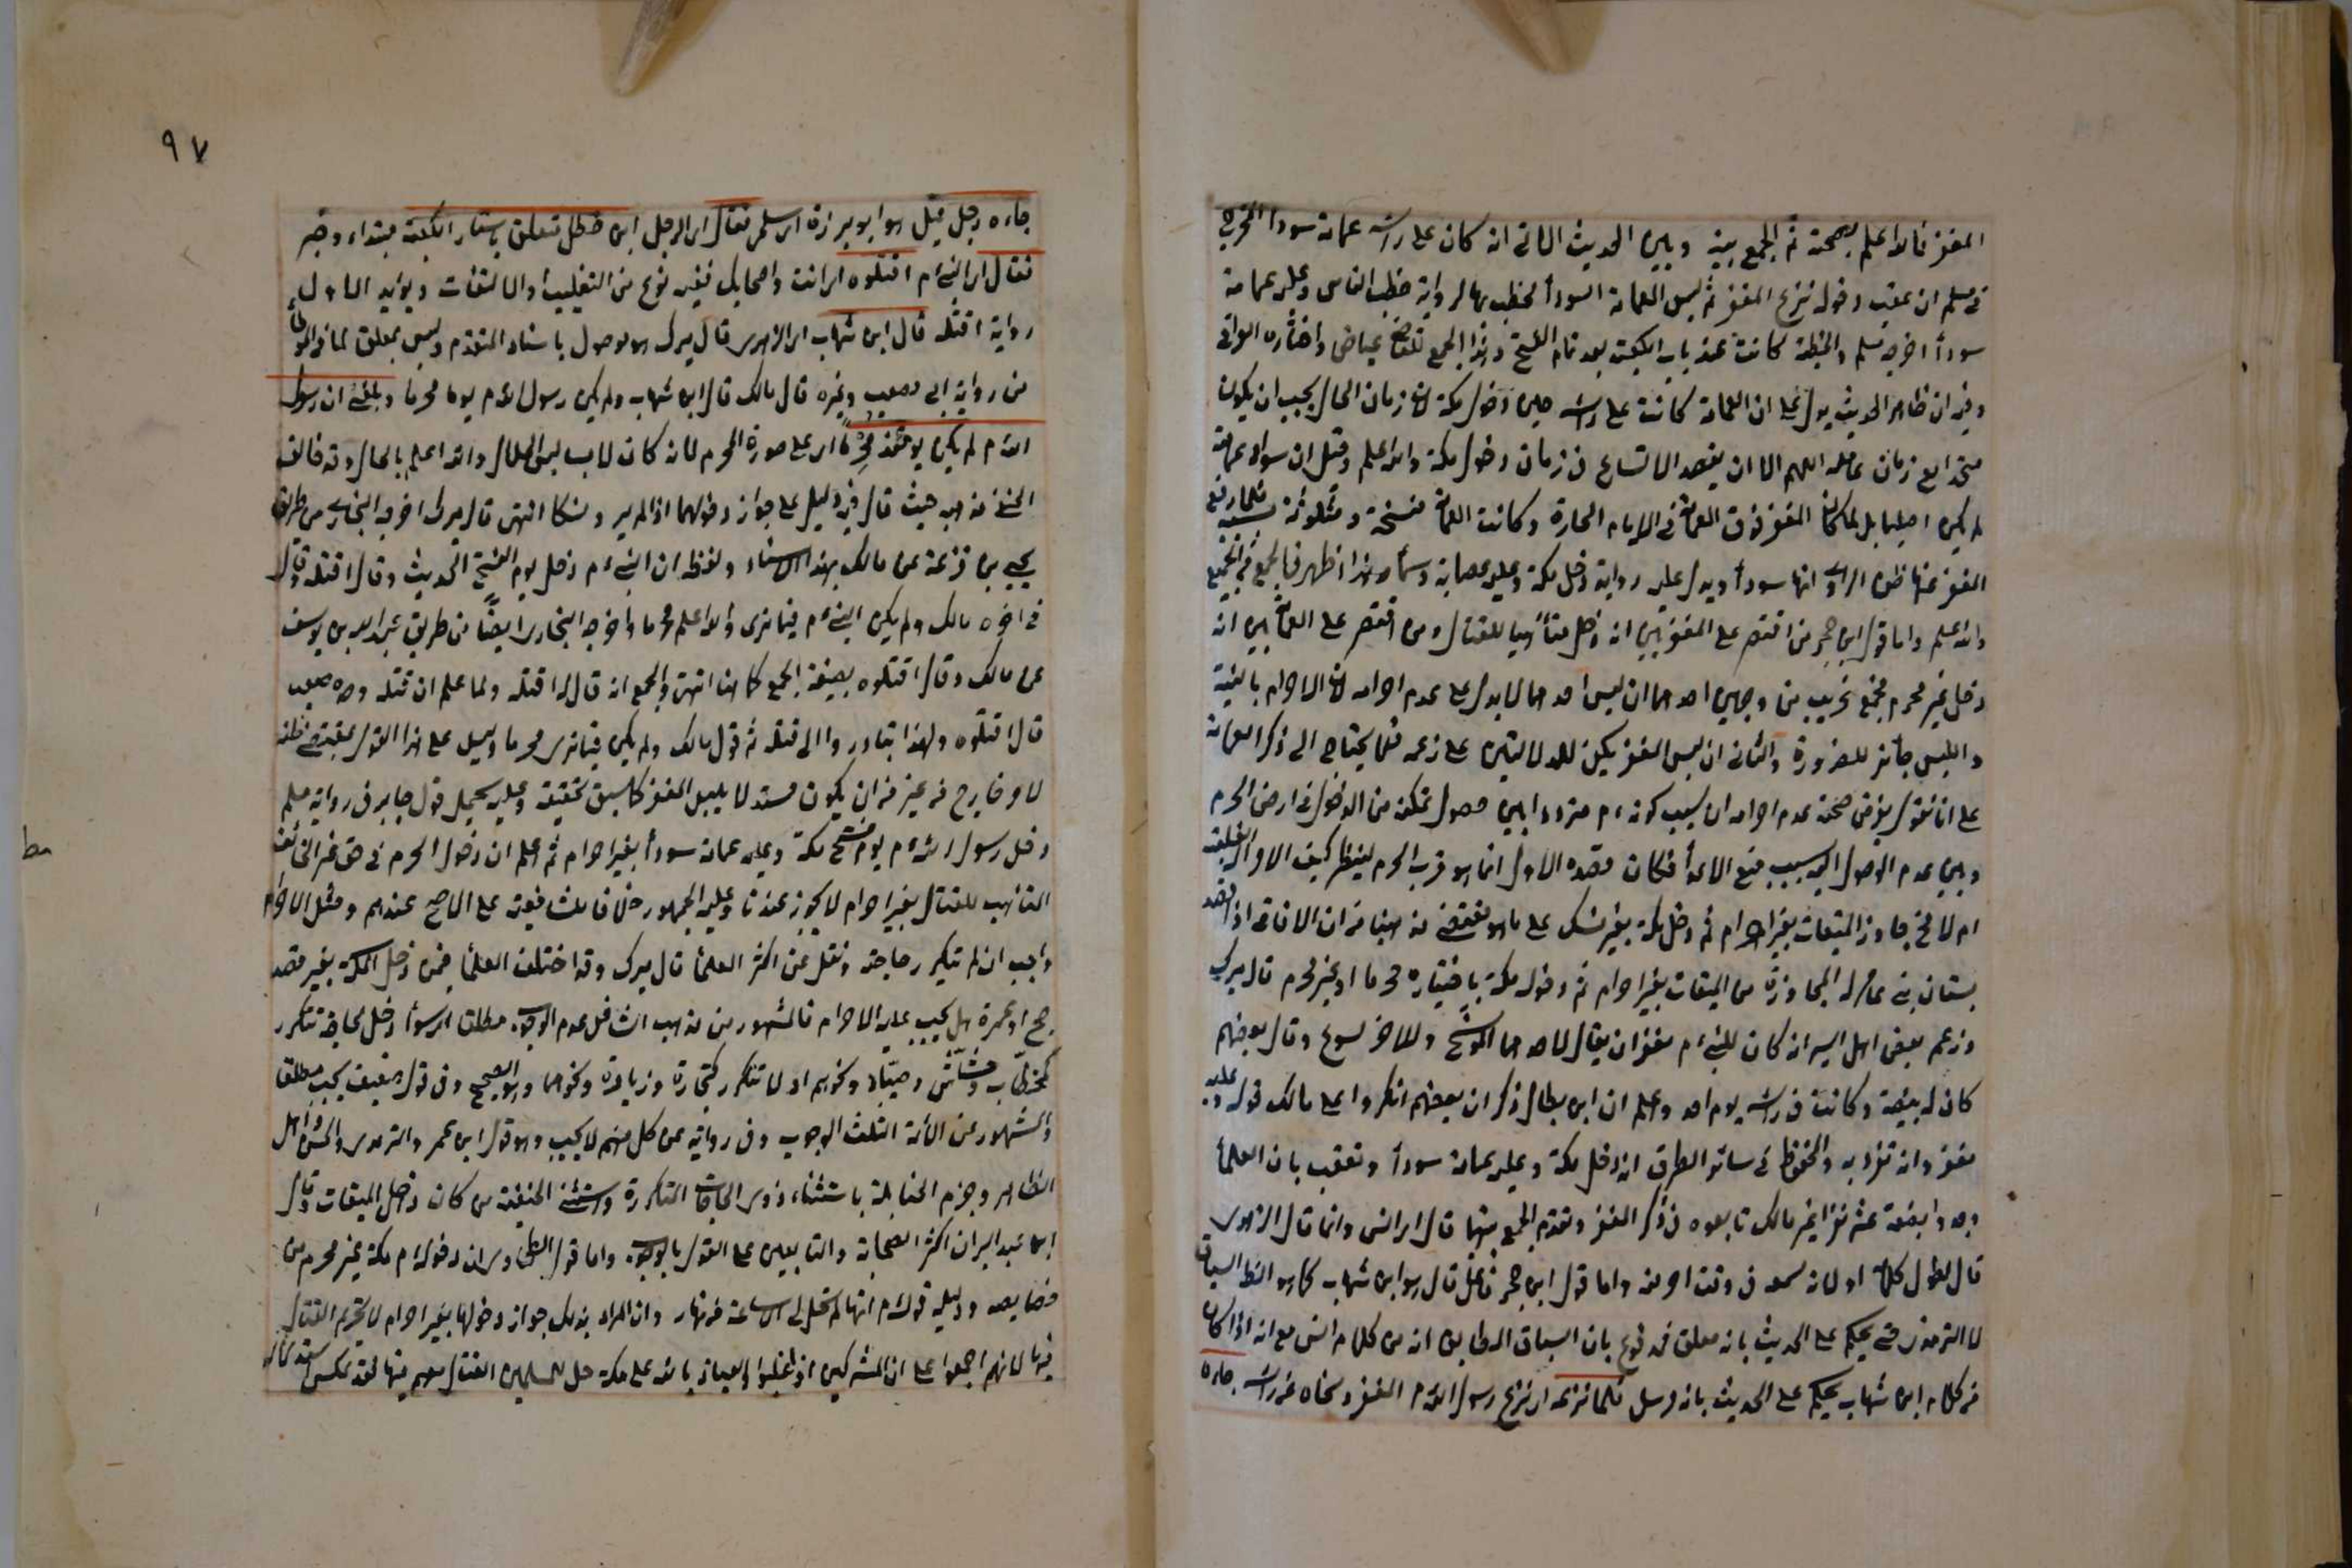 المغفر فالله اعلم بصحته ثم الجمع بينه وبين الحديث الاتى انه كان على راسه عمامة سوداء اخرجه
مسلم ان عقب دخوله نزع المغفر ثم لبس العمامة السوداء فخطب بها لرواية خطب الناس وعليه عمامة
سوداء اخرجه مسلم والخطبة كانت عند باب الكعبة بعد تمام الفتح وهذا الجمع للقاضى عياض واختاره العراقى
وفيه ان ظاهر الحديث يدل على ان العمامة كانت على راسه حين دخول مكة لان زمان الحال يجب ان يكون
متحدا مع زمان عامله اللهم الا ان يقصد الاتساع فى زمان دخول مكة والله اعلم وقيل ان سواد عمامته
لم يكن اصليا بل لما كان المغفر فوق العمامة فى الايام الحارة وكانت العمامة متسخة ومتلوثة فلما رفع
المغفر عنها ظن الراوى انها سوداء ويدل عليه رواية دخل مكة وعليه عصابة دسماء وهذا اظهر فى الجمع
والله اعلم واما قول ابن حجر من اقتصر على المغفر بين انه دخل متأهبا للقتال ومن اقتصر على العمامة بين انه
دخل غير محرم فجمع غريب من وجهين احدهما ان لبس احدهما لا يدل على عدم احرامه لان الاحرام بالنية
واللبس جائز للضرورة والثانى ان لبس المغفر يكفى للدلالتين على زعمه فلا يحتاج الى ذكر العمامة
على انا نقول بفرض صحة عدم احرامه ان سبب كونه م مترددا بين حصول تمكنه من الدخول فى ارض الحرم
وبين عدم الوصول اليه بسبب منع الاعداء فكان قصده الاول انما هو قرب الحرم لينظر كيف الامر
ام لا فخ جاوز الميقات بغير احرام ثم دخل مكة بغير نسك على ما هو مقتضى مذهبنا من ان الافاقى اذا قصد
بستان بنى عامر له المجاوزة من الميقات بغير احرام ثم دخوله مكة باختياره محرما او غير محرم قال ميرك
وزعم بعض اهل السير انه كان للنبى م مغفران يقال لاحدهما الموشح وللاخر لسبوغ وقال بعضهم
كان له بيضة وكانت فى راسه يوم احد واعلم ان ابن بطال ذكر ان بعضهم انكروا على مالك قوله وعليه
مغفر وانه تفرد به والمحفوظ فى سائر الطرق انه دخل مكة وعليه عمامة سوداء وتعقب بان العلماء
وجدوا بضعة عشر نفرا غير مالك تابعوه فى ذكر المغفر وتقدم الجمع بينهما قال اى انس وانما قال الزهرى
قال لطول كلامه او لانه سمعه فى وقت اخر منه واما قول ابن حجر فاعل قال هو ابن شهاب كما هو السياق
لا الترمذى حتى يحكم على الحديث بانه معلق فمدفوع بان السياق المطابق انه من كلام انس مع انه اذا كان
من كلام ابن شهاب يحكم على الحديث بانه مرسل فلما نزعه اى نزع رسول الله م المغفر ونحاه عن راسه جاءه
٩٧
جاءه رجل قيل هو ابو برزة الاسلمى فقال اى الرجل ابن خطل متعلق باستار الكعبة مبتداء وخبر
فقال اى النبى م اقتلوه اى انت واصحابك ففيه نوع من التغليب والالتفات ويؤيد الاول
رواية اقتله قال ابن شهاب اى الزهرى قال ميرك هو موصول باسناد المتقدم وليس بمعلق لما فى الموطأ
من رواية ابى مصعب وغيره قال مالك قال ابن شهاب ولم يكن رسول الله م يومئذ محرما وبلغنى ان رسول
الله م لم يكن يومئذ محرما اى على صورة المحرم لانه كان لابسا لبس الحلال والله اعلم بالحال وقد خالف
الحنفى مذهبه حيث قال فيه دليل على جواز دخولهما اذا لم يرد نسكا انتهى قال ميرك اخرجه البخارى من طريق
يحيى بن قزعة عن مالك بهذا الاسناد ولفظه ان النبى م دخل يوم الفتح الحديث وقال اقتله وقال
فى اخره مالك ولم يكن النبى م فيما نرى والله اعلم محرما واخرجه البخارى ايضا من طريق عبد الله بن يوسف
عن مالك وقال اقتلوه بصيغة الجمع كما هنا انتهى والجمع انه قال له اقتله ولما علم ان قتله وحده صعب
قال اقتلوه ولهذا تبادروا الى قتله ثم قول مالك ولم يكن فيما نرى محرما دليل على هذا القول بمقتضى ظنه
لامر خارج من غير من ان يكون مستدلا بلبس المغفر كما سبق تحقيقه وعليه يحمل قول جابر فى رواية مسلم
دخل رسول الله م يوم فتح مكة وعليه عمامة سوداء بغير احرام ثم اعلم ان دخول الحرم فى حق غير الخائف
المتأهب للقتال بغير احرام لا يجوز عندنا وعليه الجمهور خلافا للشافعية على الاصح عندهم ومثل الاحرام
واجب ان لم تتكرر حاجته ونقل عن اكثر العلماء قال ميرك وقد اختلف العلماء فمن دخل مكة بغير قصد
حج او عمرة هل يجب عليه الاحرام فالمشهور من مذهب الشافعى عدم الوجوب مطلقا اى سواء دخل لحاجة تتكرر
كحطاب وحشاش وصياد ونحوهم او لا تتكرر كتجارة وزيارة ونحوهما وهو الصحيح وفى قول ضعيف يجب مطلقا
والمشهور عن الائمة الثلث الوجوب وفى رواية عن كل منهم لا يجب وهو قول ابن عمر والزهرى والحسن واهل
الظاهر وجزم الحنابلة باستثناء ذوى الحاجات المتكررة واستثنى الحنفية من كان داخل الميقات وقال
ابن عبد البر ان اكثر الصحابة والتابعين على القول بالوجوب واما قول الطحاوى ان دخوله م مكة غير محرم من
خصايصه ودليله قوله م انها لم تحل لى الا ساعة من نهار وان المراد بذلك جواز دخولها بغير احرام لا تحريم القتال
فيها لانهم اجمعوا على ان المشركين اذا غلبوا والعياذ بالله على مكة حل للمسلمين القتال معهم فيها فقد عكس